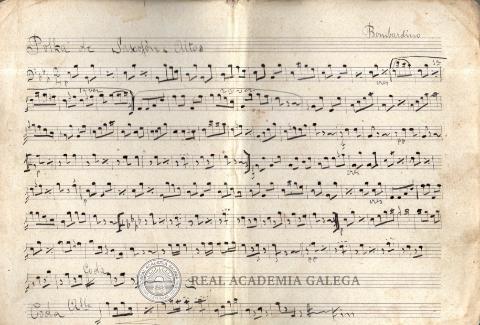 Bombardino
Polka de Saxofóns Altos
Coda
REAL ACADEMIA GALEGA
Coda Allº